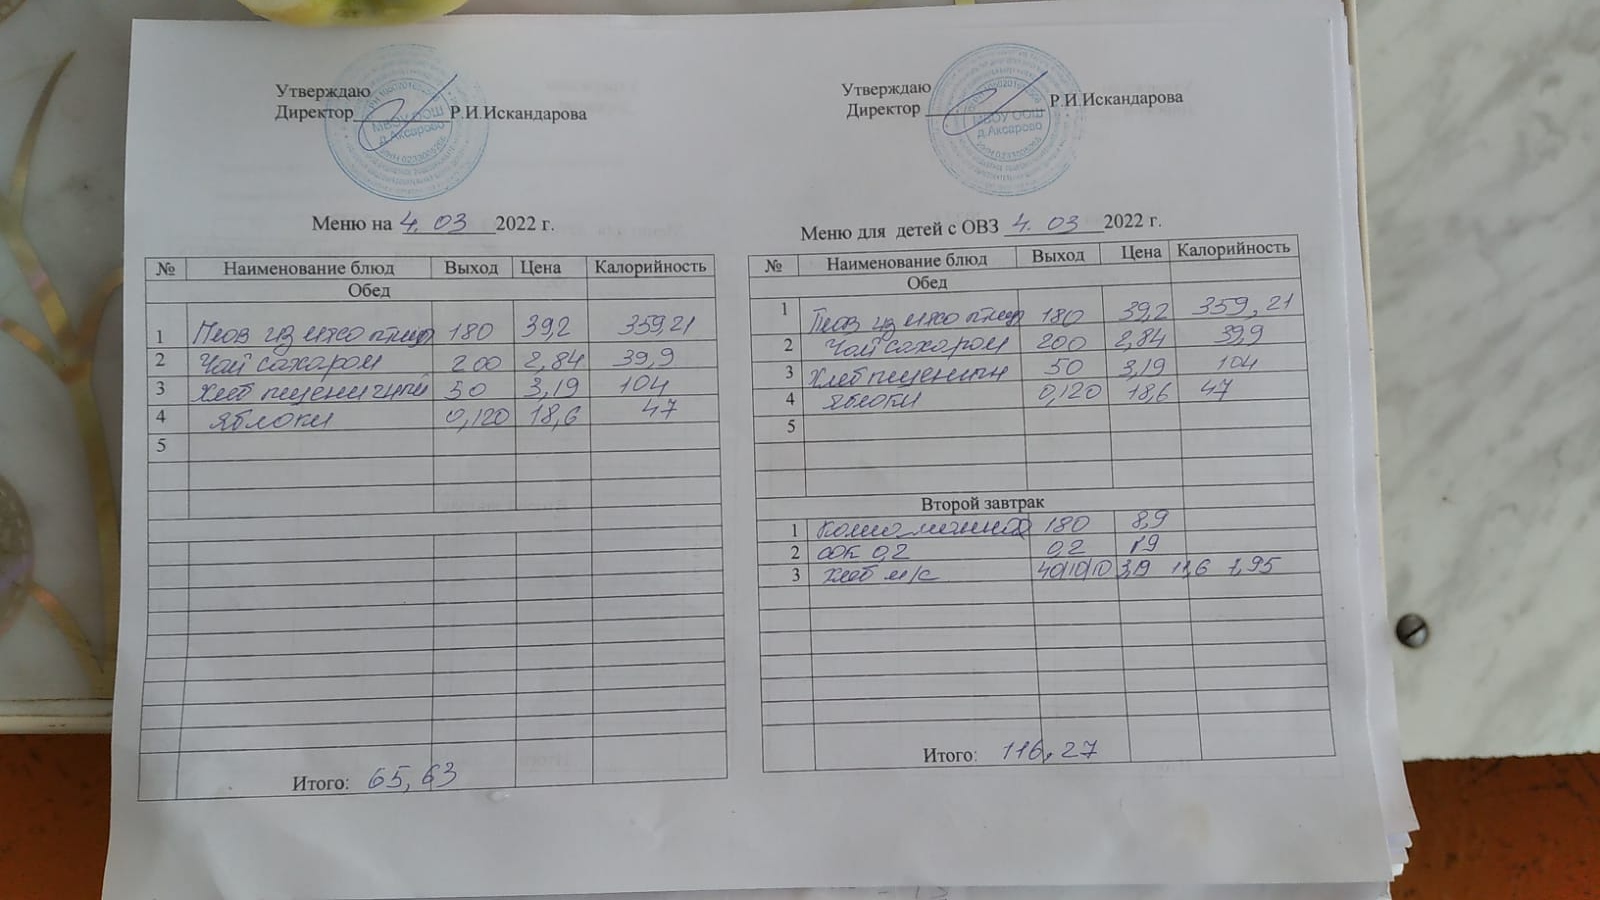 Утверждаю
Директор__________Р.И.Искандарова
МБОУ ООШ
д.Аксарово
Меню на 4. 03 2022 г.
№ Наименование блюд Выход Цена Калорийность
Обед
1 Плов из мяса птицы 180 39,2 359,21
2 Чай сахаром 200 2,84 39,9
3 Хлеб пшеничный 50 3,19 104
4 яблоки 0,120 18,6 47
5
Итого: 65,63
Утверждаю
Директор ____________ Р.И.Искандарова
МБОУ ООШ
д.Аксарово
Меню для детей с ОВЗ 4. 03 2022 г.
№ Наименование блюд Выход Цена Калорийность
Обед
1 Плов из мяса птицы 180 39,2 359,21
2 Чай сахаром 200 2,84 39,9
3 Хлеб пшеничн 50 3,19 104
4 яблоки 0,120 18,6 47
5
Второй завтрак
1 180 8,9
2 сок 0,2 0,2 19
3 хлеб м/с 40/10/10 3,19 11,6 7,95
Итого: 116,27